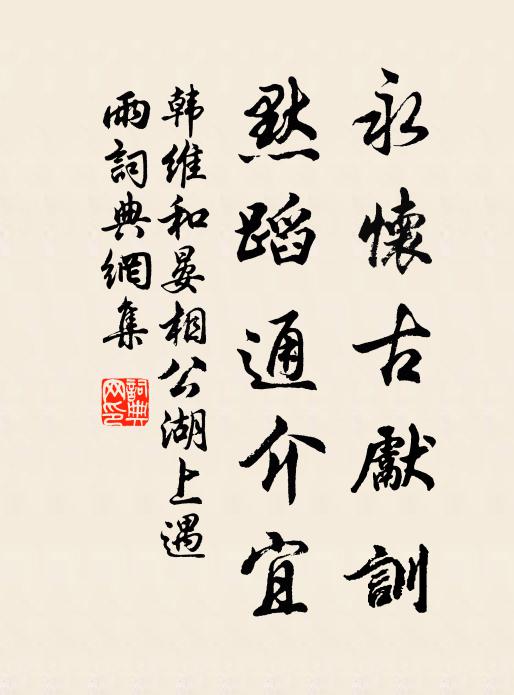 永懷古獻訓
默蹈通介宜
韩維和晏相公湖上遇
雨詞典網集
詞典
网印